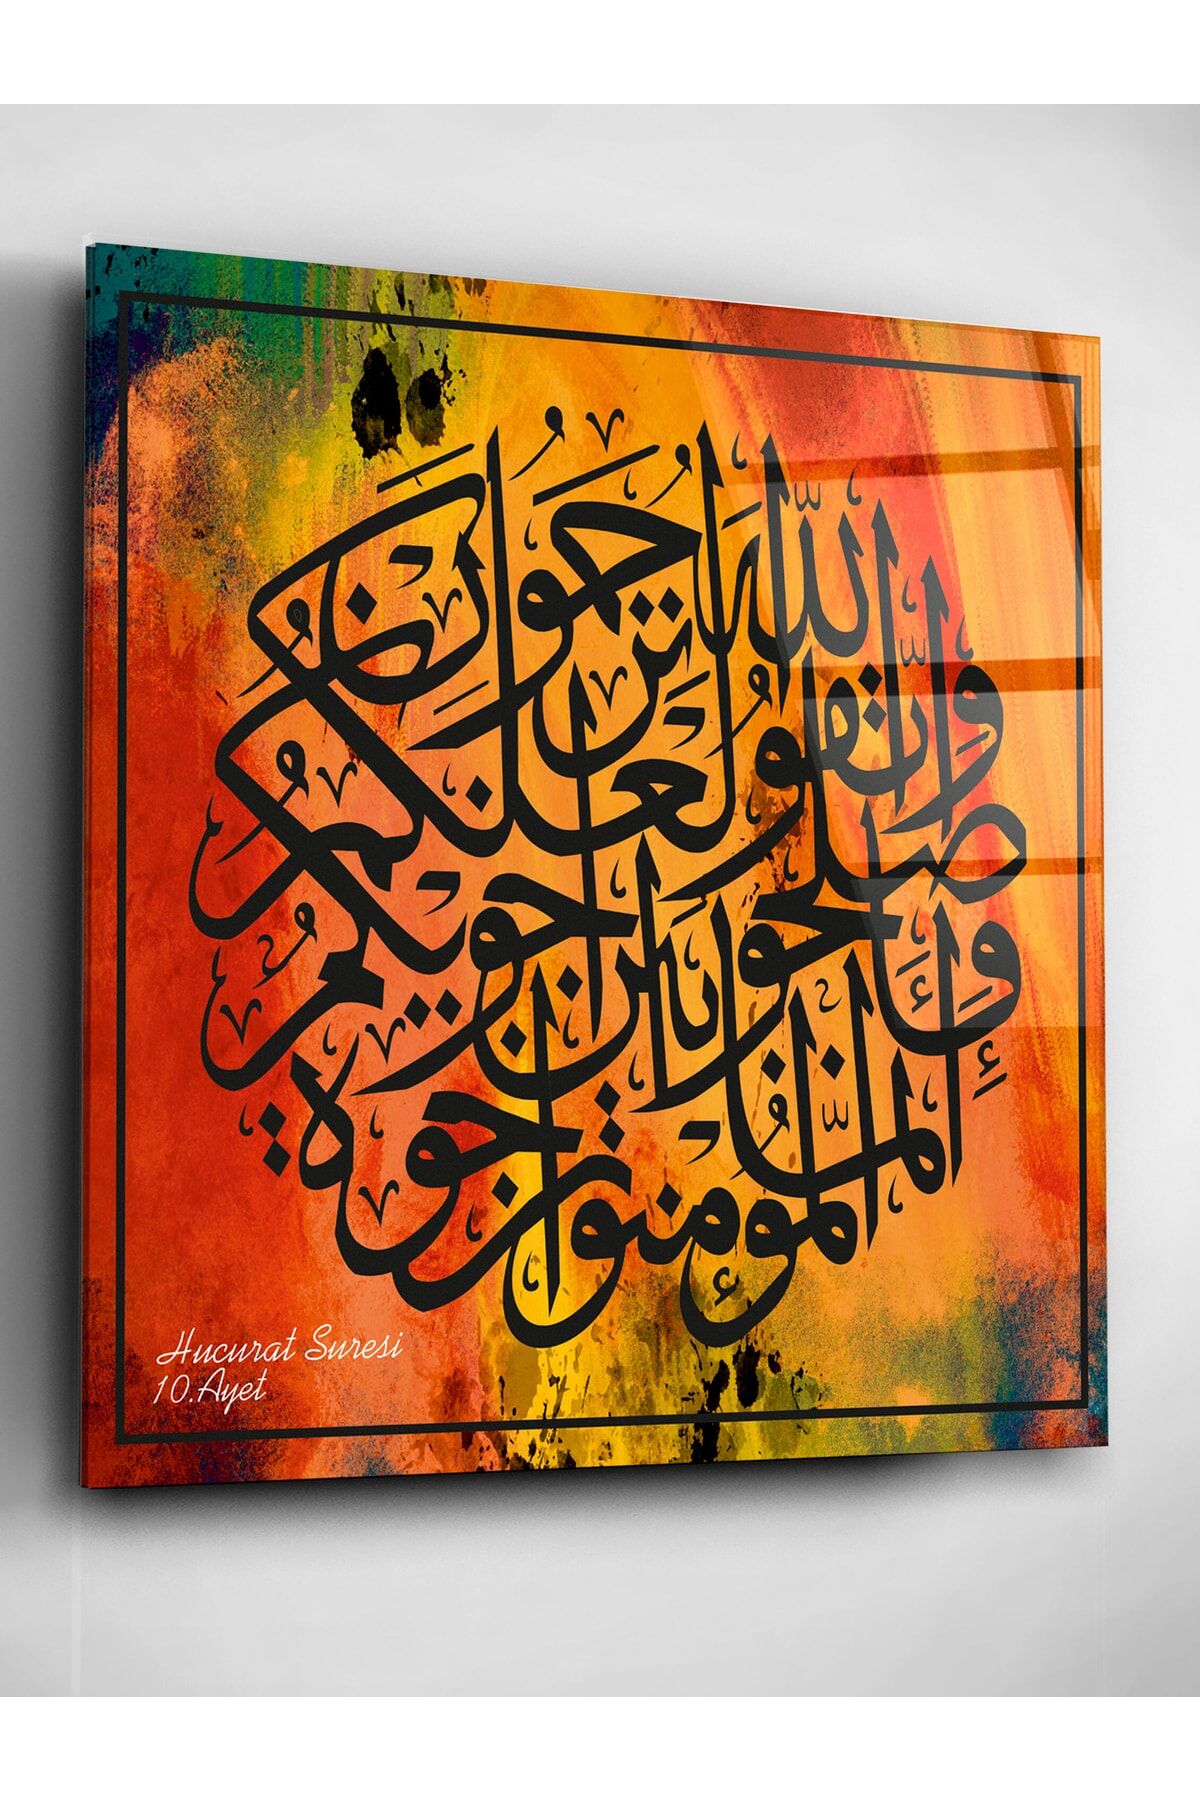 إنما المؤمنون إخوة
فأصلحوا بين أخويكم
واتقوا الله لعلكم ترحمون
Hucurat Suresi
10.Ayet